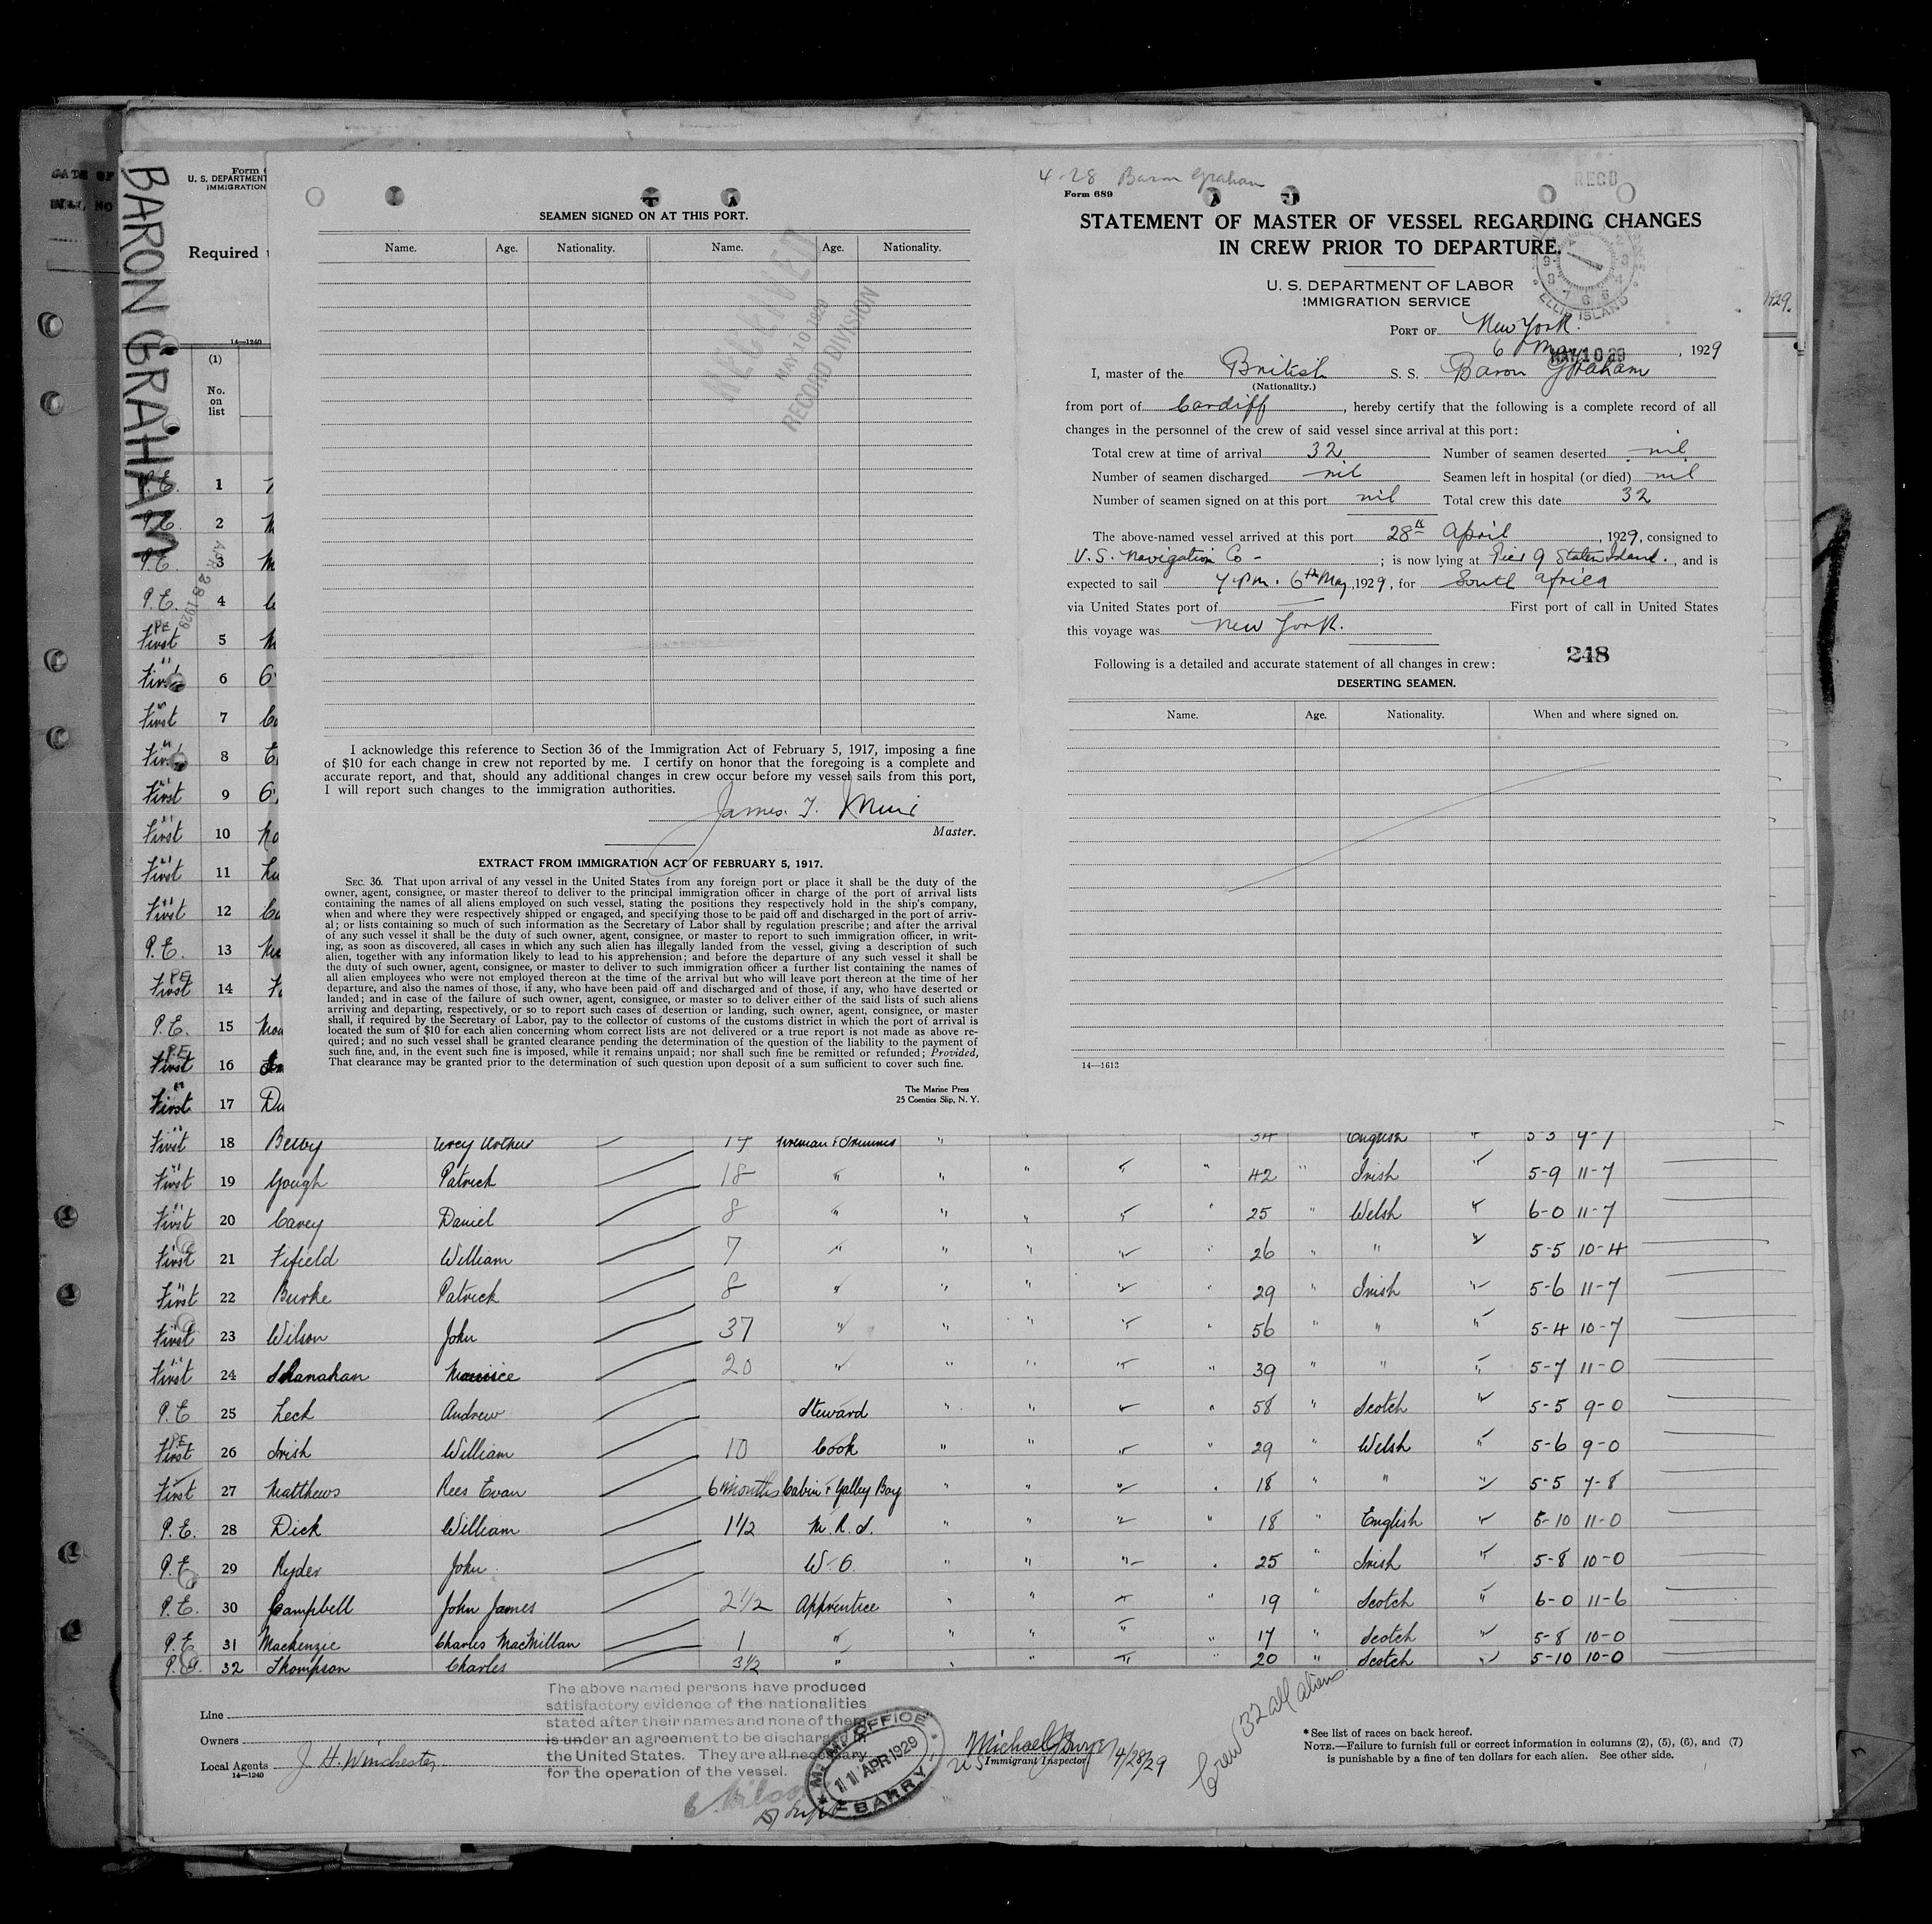 BARON GRAHAM
U. S. DEPARTMENT
IMMIGRATION
Required
14—1240
(1)
No.
on
list
APR 28 1929
SEAMEN SIGNED ON AT THIS PORT.
Name. Age. Nationality. Name. Age. Nationality.
RECEIVED
MAY 10 1929
RECORD DIVISION
I acknowledge this reference to Section 36 of the Immigration Act of February 5, 1917, imposing a fine
of $10 for each change in crew not reported by me. I certify on honor that the foregoing is a complete and
accurate report, and that, should any additional changes in crew occur before my vessel sails from this port,
I will report such changes to the immigration authorities.
James. T. Muir
Master.
EXTRACT FROM IMMIGRATION ACT OF FEBRUARY 5, 1917.
SEC. 36. That upon arrival of any vessel in the United States from any foreign port or place it shall be the duty of the
owner, agent, consignee, or master thereof to deliver to the principal immigration officer in charge of the port of arrival lists
containing the names of all aliens employed on such vessel, stating the positions they respectively hold in the ship's company,
when and where they were respectively shipped or engaged, and specifying those to be paid off and discharged in the port of arriv-
al; or lists containing so much of such information as the Secretary of Labor shall by regulation prescribe; and after the arrival
of any such vessel it shall be the duty of such owner, agent, consignee, or master to report to such immigration officer, in writ-
ing, as soon as discovered, all cases in which any such alien has illegally landed from the vessel, giving a description of such
alien, together with any information likely to lead to his apprehension; and before the departure of any such vessel it shall be
the duty of such owner, agent, consignee, or master to deliver to such immigration officer a further list containing the names of
all alien employees who were not employed thereon at the time of the arrival but who will leave port thereon at the time of her
departure, and also the names of those, if any, who have been paid off and discharged and of those, if any, who have deserted or
landed; and in case of the failure of such owner, agent, consignee, or master so to deliver either of the said lists of such aliens
arriving and departing, respectively, or so to report such cases of desertion or landing, such owner, agent, consignee, or master
shall, if required by the Secretary of Labor, pay to the collector of customs of the customs district in which the port of arrival is
located the sum of $10 for each alien concerning whom correct lists are not delivered or a true report is not made as above re-
quired; and no such vessel shall be granted clearance pending the determination of the question of the liability to the payment of
such fine, and, in the event such fine is imposed, while it remains unpaid; nor shall such fine be remitted or refunded; Provided,
That clearance may be granted prior to the determination of such question upon deposit of a sum sufficient to cover such fine.
The Marine Press
25 Coenties Slip, N. Y.
4-28 Baron Graham
RECD
Form 689
STATEMENT OF MASTER OF VESSEL REGARDING CHANGES
IN CREW PRIOR TO DEPARTURE.
U. S. DEPARTMENT OF LABOR
IMMIGRATION SERVICE
ELLIS ISLAND
PORT OF New York.
6 May, 1929
MAY 10 29
I, master of the British S. S. Baron Graham
(Nationality.)
from port of Cardiff, hereby certify that the following is a complete record of all
changes in the personnel of the crew of said vessel since arrival at this port:
Total crew at time of arrival 32 Number of seamen deserted nil
Number of seamen discharged nil Seamen left in hospital (or died) nil
Number of seamen signed on at this port nil Total crew this date 32
The above-named vessel arrived at this port 28th April, 1929, consigned to
U.S. Navigation Co -; is now lying at Pier 9 Staten Island., and is
expected to sail 4 pm. 6th May, 1929, for South Africa
via United States port of — First port of call in United States
this voyage was New York.
248
Following is a detailed and accurate statement of all changes in crew:
DESERTING SEAMEN.
Name. Age. Nationality. When and where signed on.
14—1613
P.E. 1
P.E. 2
P.E. 3
P.E. 4
First 5
First 6
First 7
First 8
First 9
First 10
First 11
First 12
P.E. 13
First 14
P.E. 15
First 16
First 17
First 18 Arthur 34 English 5-5 9-7
First " 19 Gough Patrick 18 " " " " " 42 " Irish " 5-9 11-7
First " 20 Carey Daniel 8 " " " " " 25 " Welsh " 6-0 11-7
First 21 Fifield William 7 " " " " " 26 " " " 5-5 10-4
First " 22 Burke Patrick 8 " " " " " 29 " Irish " 5-6 11-7
First 23 Wilson John 37 " " " " " 56 " " " 5-4 10-7
First " 24 Shanahan Maurice 20 " " " " " 39 " " " 5-7 11-0
P.E 25 Leck Andrew Steward " " " " 58 " Scotch " 5-5 9-0
First P.E 26 Irish William 10 Cook " " " " 29 " Welsh " 5-6 9-0
First 27 Matthews Rees Evan 6 Months Cabin & Galley Boy " " " " 18 " " " 5-5 7-8
P.E. 28 Dick William 1½ M. R. S. " " " " 18 " English " 5-10 11-0
P.E 29 Ryder John W-O. " " " " 25 " Irish " 5-8 10-0
P.E. 30 Campbell John James 2½ Apprentice " " " " 19 " Scotch " 6-0 11-6
P.E 31 Mackenzie Charles MacMillan 1 " " " " " 17 " Scotch " 5-8 10-0
P.E. 32 Thompson Charles 3½ " " " " " 20 " Scotch " 5-10 10-0
The above named persons have produced
satisfactory evidence of the nationalities
stated after their names and none of them
is under an agreement to be discharged in
the United States. They are all necessary
for the operation of the vessel.
Line
Owners
Local Agents J. H. Winchester
14—1240
M. M. OFFICE
11 APR 1929
BARRY
Immigrant Inspector 4/28/29
Crew (32 all aliens
*See list of races on back hereof.
NOTE.—Failure to furnish full or correct information in columns (2), (5), (6), and (7)
is punishable by a fine of ten dollars for each alien. See other side.